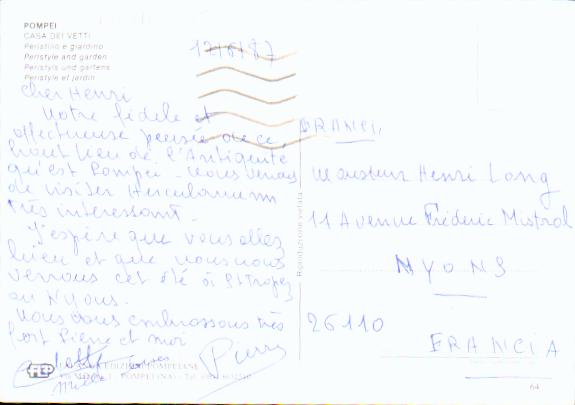 POMPEI
CASA DEI VETTI
Peristilio e giardino
Peristyle and garden
Peristyls und gartens
Peristyle et jardin
12/6/87
Cher Henri
Notre fidèle et
affectueuse pensée de ce
haut lieu de l'Antiquité
qu'est Pompei - nous venons
de visiter Herculanum
très intéressant.
J'espère que vous allez
bien et que nous nous
verrons cet été à St Tropez
ou Nyons.
Nous vous embrassons très
fort Pierre et moi
Pierre
FRANCIA
Monsieur Henri Long
11 Avenue Frédéric Mistral
NYONS
26110
FRANCIA
Riproduzione vietata
EDIZIONI POMPEIANE
64